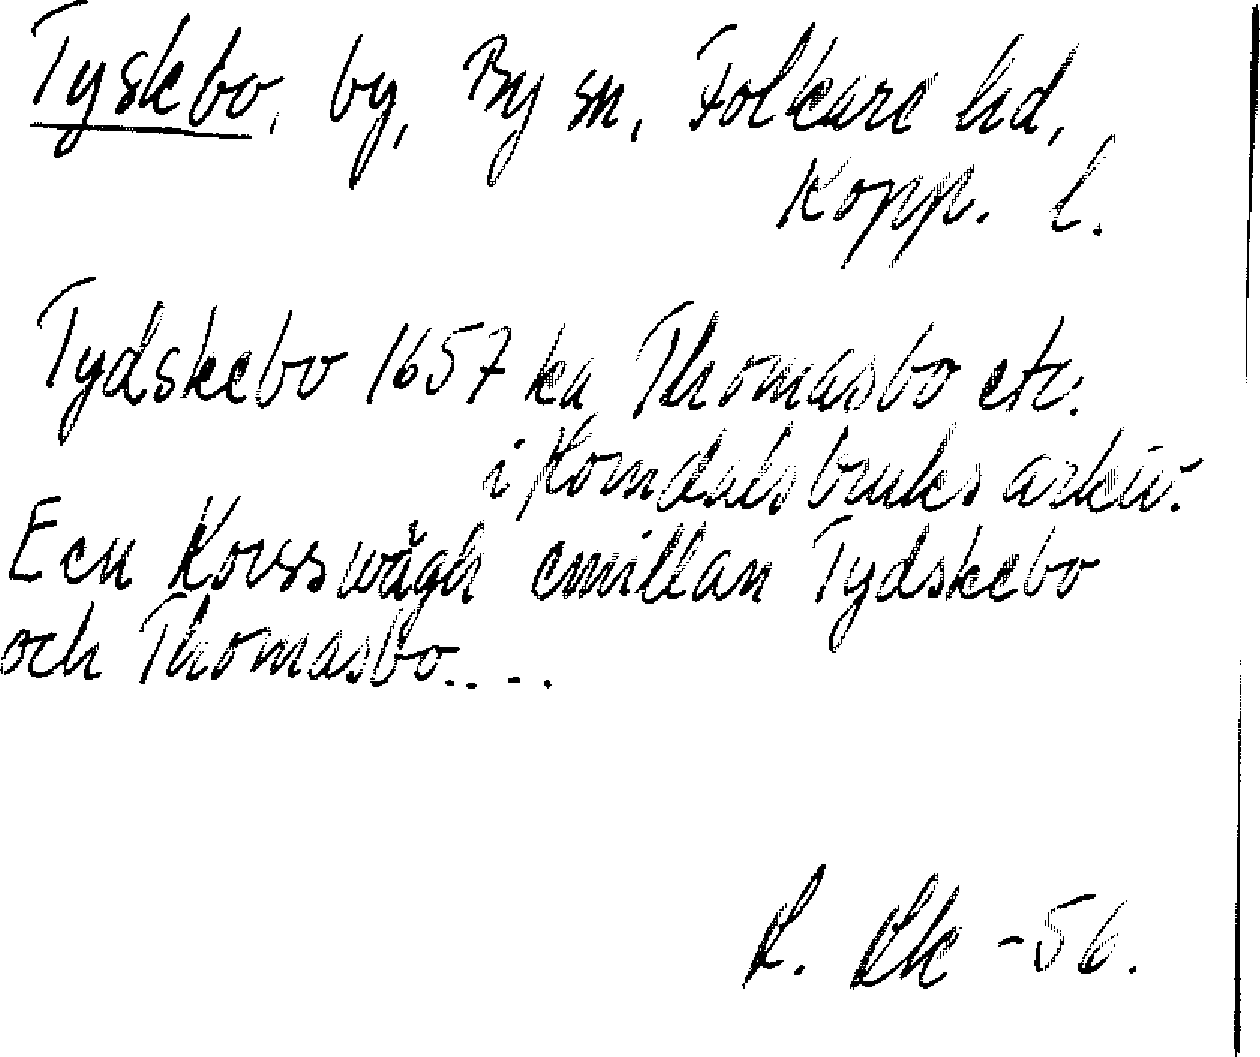 Tyskebo, by, By sn, Folkare hd,
Kopp. l.
Tydskebo 1657 ka Thomasbo etc.
i Horndals bruks arkiv.
Een Korsswägh emillan Tydskebo
och Thomasbo....
-56.